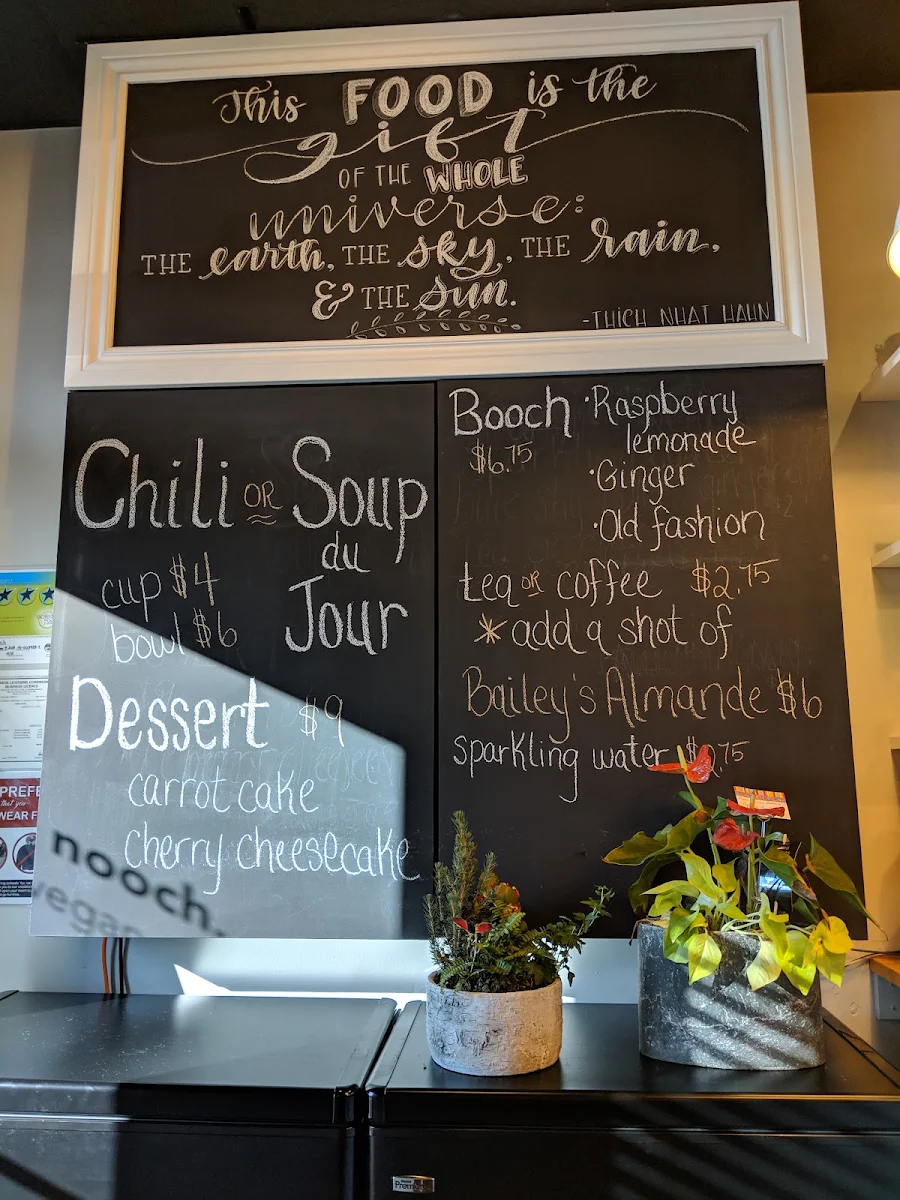 This FOOD is the
gift
OF THE WHOLE
universe:
THE earth, THE sky, THE rain,
& THE sun.
-THICH NHAT HAHN
Chili OR Soup
du
Jour
cup $4
bowl $6
Dessert $9
carrot cake
cherry cheesecake
Booch $6.75
·Raspberry
lemonade
·Ginger
·Old fashion
tea OR coffee $2.75
*add a shot of
Bailey's Almande $6
sparkling water $2.75
nooch.
vegan
PREFE
that you
WEAR F